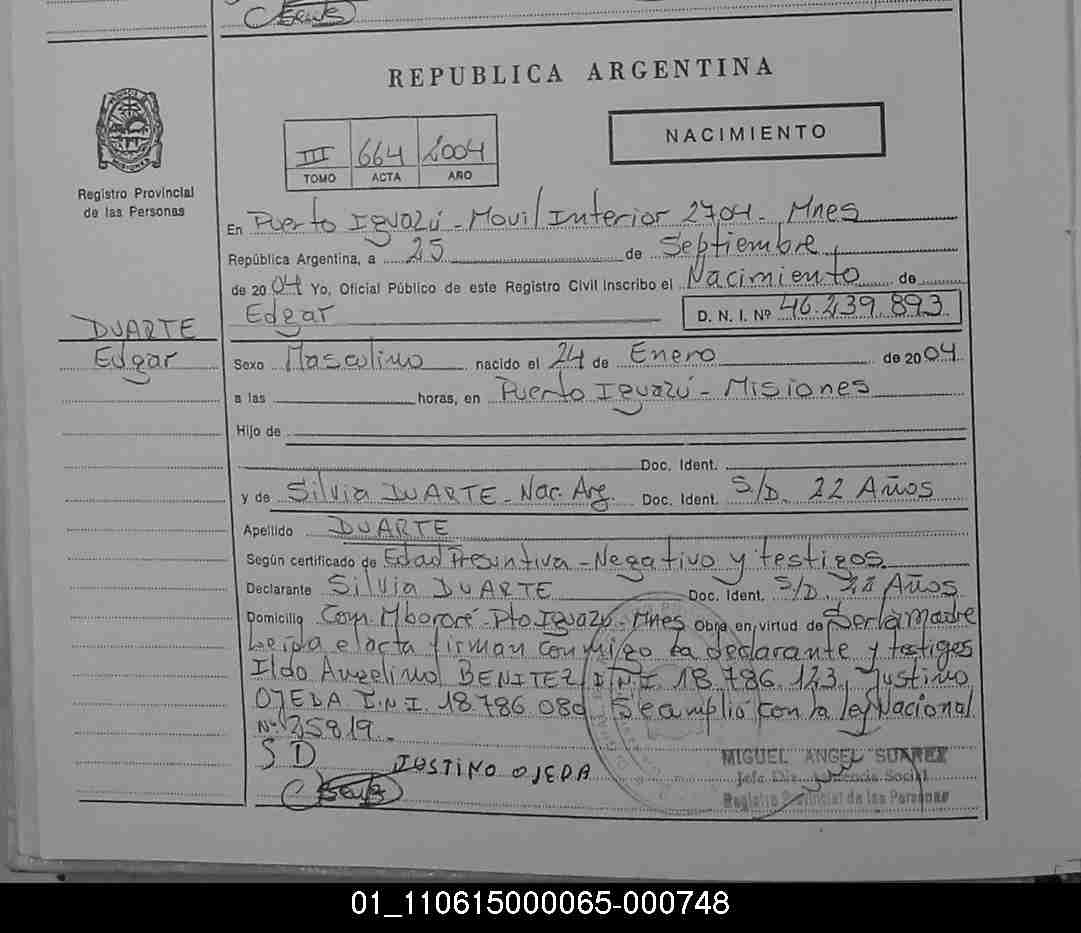 REPUBLICA ARGENTINA
NACIMIENTO
III 664 2004
TOMO ACTA AÑO
Registro Provincial
de las Personas
En Puerto Iguazú - Movil Interior 2704 - Mnes
República Argentina, a 25 de Septiembre
de 2004 Yo, Oficial Público de este Registro Civil inscribo el Nacimiento de
Edgar D. N. I. Nº 46.239.893
DUARTE
Edgar
Sexo Masculino nacido el 24 de Enero de 2004
a las horas, en Puerto Iguazú - Misiones
Hijo de
Doc. Ident.
y de Silvia DUARTE - Nac. Arg. Doc. Ident. S/D. 22 Años
Apellido DUARTE
Según certificado de Edad Presuntiva - Negativo y testigos
Declarante Silvia DUARTE Doc. Ident. S/D. 22 Años
Domicilio Com. Mbororé - Pto Iguazú - Mnes Obra en virtud de Ser la Madre
Leída el acta firman conmigo la declarante y testigos
Ildo Angelino BENITEZ D.N.I. 18.786.123, Justino
OJEDA D.N.I. 18.786.080 Se amplió con la ley Nacional
Nº 25819.
S D JUSTINO OJEDA
MIGUEL ANGEL SUAREZ
Registro Provincial de las Personas
01_110615000065-000748